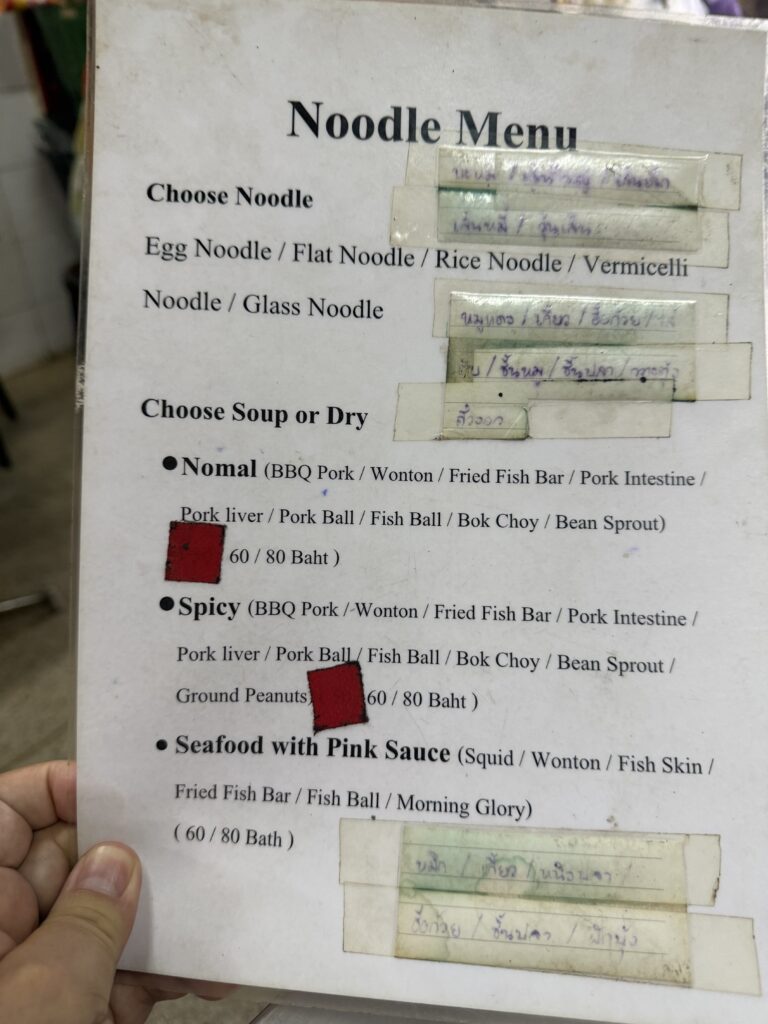 Noodle Menu
Choose Noodle
เส้นหมี่ / วุ้นเส้น
Egg Noodle / Flat Noodle / Rice Noodle / Vermicelli
Noodle / Glass Noodle
หมูแดง / เกี๊ยว /
/ ชิ้นหมู / ชิ้นปลา /
ถั่วงอก
Choose Soup or Dry
●Nomal (BBQ Pork / Wonton / Fried Fish Bar / Pork Intestine /
Pork liver / Pork Ball / Fish Ball / Bok Choy / Bean Sprout)
60 / 80 Baht )
●Spicy (BBQ Pork / Wonton / Fried Fish Bar / Pork Intestine /
Pork liver / Pork Ball / Fish Ball / Bok Choy / Bean Sprout /
Ground Peanuts) 60 / 80 Baht )
● Seafood with Pink Sauce (Squid / Wonton / Fish Skin /
Fried Fish Bar / Fish Ball / Morning Glory)
( 60 / 80 Bath )
หมึก / เกี๊ยว / หนังปลา /
/ ชิ้นปลา / ผักบุ้ง